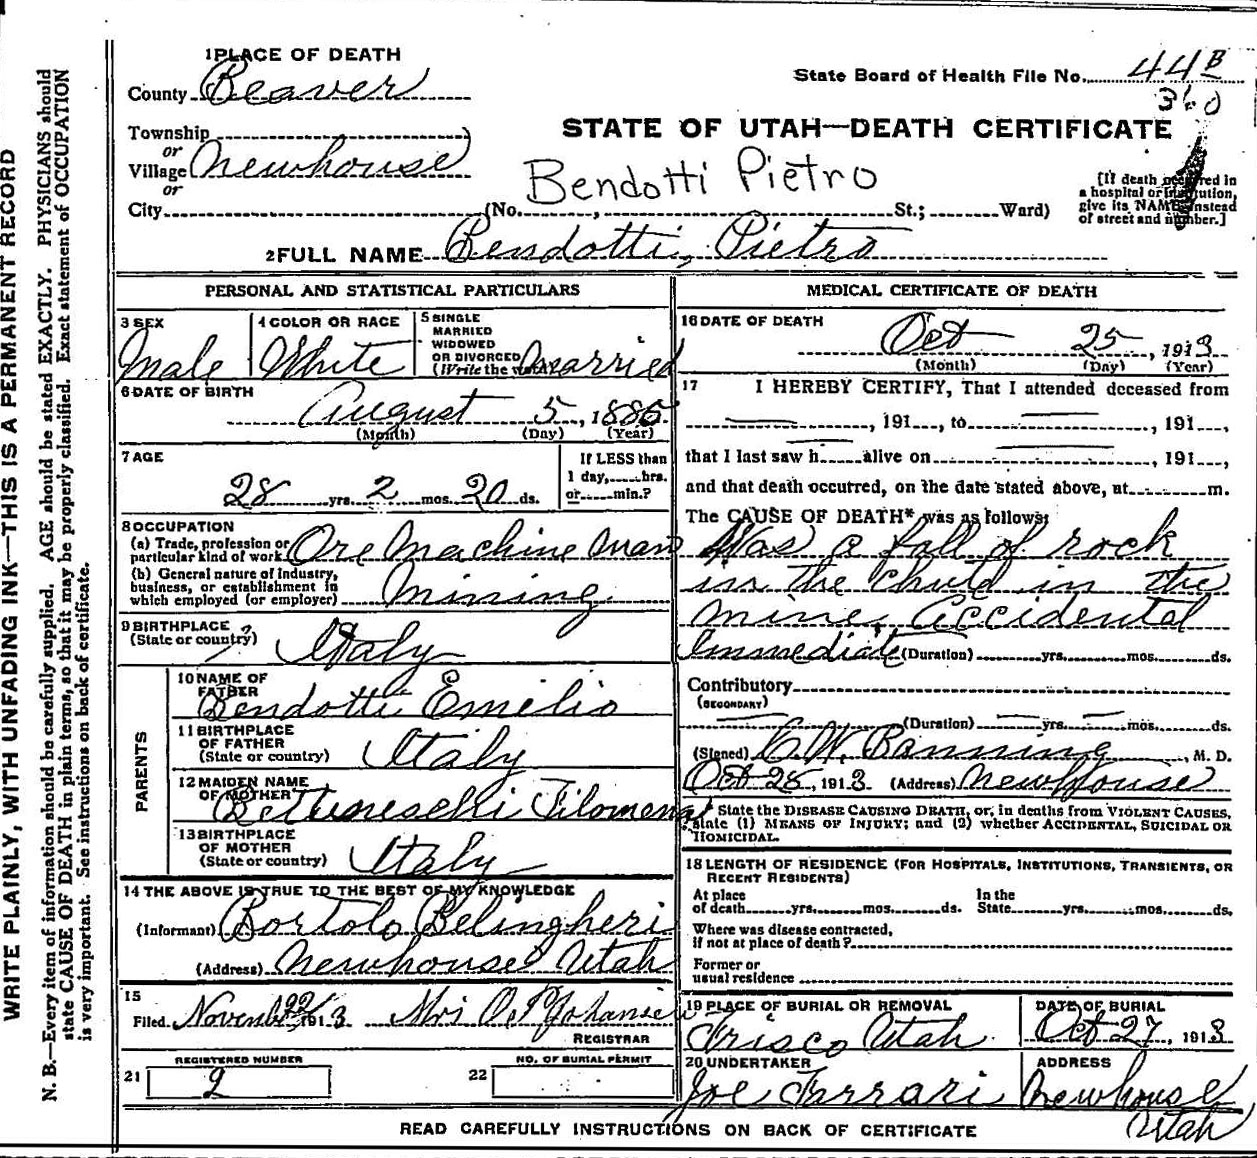 WRITE PLAINLY, WITH UNFADING INK—THIS IS A PERMANENT RECORD
N. B.—Every item of information should be carefully supplied. AGE should be stated EXACTLY. PHYSICIANS should
state CAUSE OF DEATH in plain terms, so that it may be properly classified. Exact statement of OCCUPATION
is very important. See instructions on back of certificate.
1 PLACE OF DEATH
County Beaver
Township
or
Village Newhouse
or
City (No. , St.; Ward)
State Board of Health File No. 44 B
360
STATE OF UTAH—DEATH CERTIFICATE
Bendotti Pietro
[If death occurred in
a hospital or institution,
give its NAME instead
of street and number.]
2 FULL NAME Bendotti, Pietro
PERSONAL AND STATISTICAL PARTICULARS
3 SEX
Male
4 COLOR OR RACE
White
5 SINGLE
MARRIED
WIDOWED
OR DIVORCED
(Write the word) Married
6 DATE OF BIRTH
August 5, 1885
(Month) (Day) (Year)
7 AGE
28 yrs. 2 mos. 20 ds.
If LESS than
1 day, hrs.
or min.?
8 OCCUPATION
(a) Trade, profession or
particular kind of work Ore Machine Man
(b) General nature of industry,
business, or establishment in
which employed (or employer) Mining
9 BIRTHPLACE
(State or country) Italy
PARENTS
10 NAME OF
FATHER
Bendotti Emilio
11 BIRTHPLACE
OF FATHER
(State or country) Italy
12 MAIDEN NAME
OF MOTHER
Filomena
13 BIRTHPLACE
OF MOTHER
(State or country) Italy
14 THE ABOVE IS TRUE TO THE BEST OF MY KNOWLEDGE
(Informant) Bortolo Belingheri
(Address) Newhouse Utah
15
Filed November 22 1913 Mrs O. P. Johansen
REGISTRAR
REGISTERED NUMBER
21 2
NO. OF BURIAL PERMIT
22
MEDICAL CERTIFICATE OF DEATH
16 DATE OF DEATH
Oct 25, 1913
(Month) (Day) (Year)
17 I HEREBY CERTIFY, That I attended deceased from
, 191 , to , 191 ,
that I last saw h alive on , 191 ,
and that death occurred, on the date stated above, at m.
The CAUSE OF DEATH* was as follows:
Was a fall of rock
in the chute in the
mine, Accidental
Immediate (Duration) yrs. mos. ds.
Contributory
(SECONDARY)
(Duration) yrs. mos. ds.
(Signed) C. W. Banning, M. D.
Oct 28, 1913 (Address) Newhouse
* State the DISEASE CAUSING DEATH, or, in deaths from VIOLENT CAUSES,
state (1) MEANS OF INJURY; and (2) whether ACCIDENTAL, SUICIDAL OR
HOMICIDAL.
18 LENGTH OF RESIDENCE (FOR HOSPITALS, INSTITUTIONS, TRANSIENTS, OR
RECENT RESIDENTS)
At place
of death yrs. mos. ds.
In the
State yrs. mos. ds.
Where was disease contracted,
if not at place of death?
Former or
usual residence
19 PLACE OF BURIAL OR REMOVAL
Frisco Utah
DATE OF BURIAL
Oct 27, 1913
20 UNDERTAKER
Joe Farrari
ADDRESS
Newhouse
Utah
READ CAREFULLY INSTRUCTIONS ON BACK OF CERTIFICATE